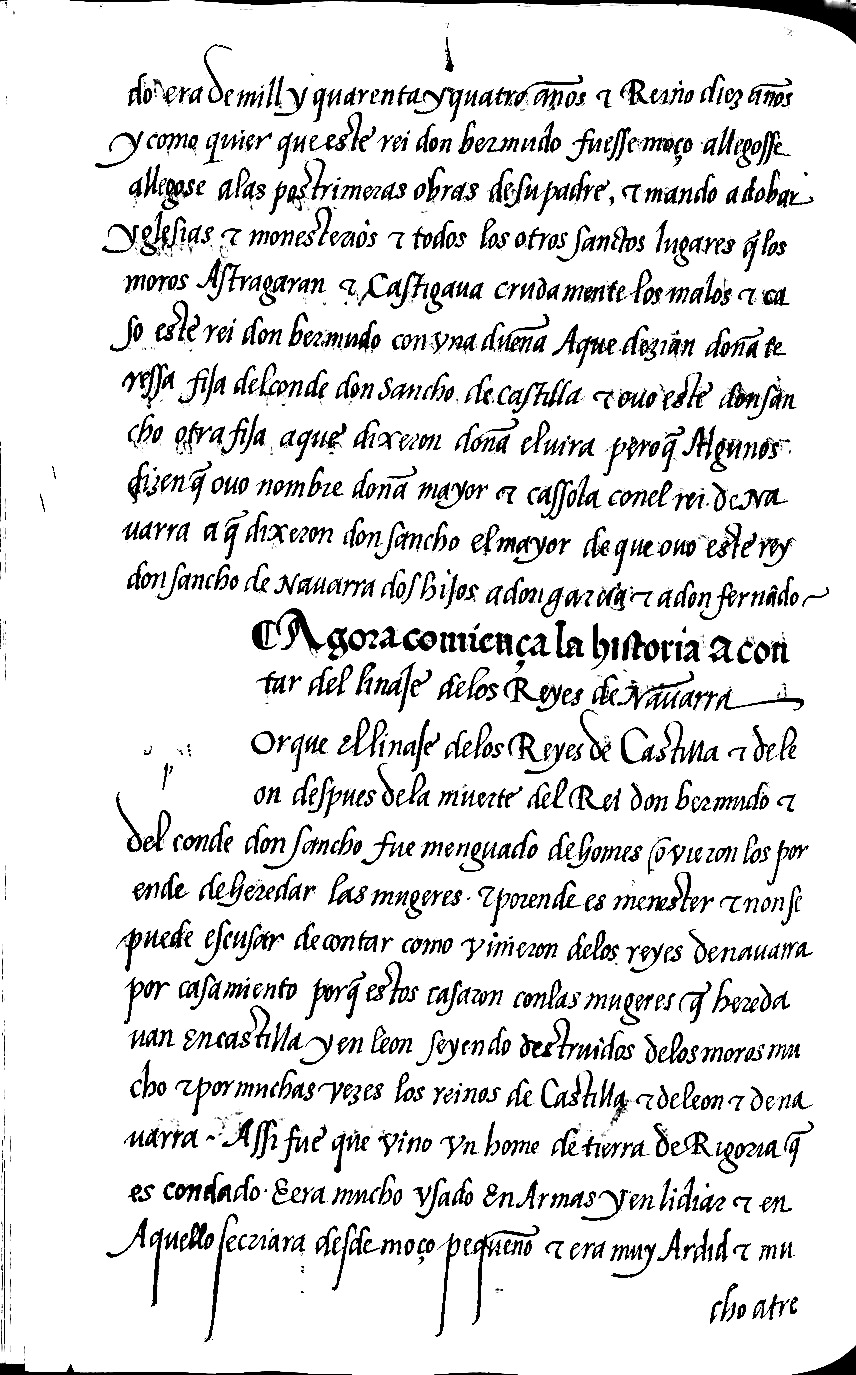 do era de mill y quarenta y quatro años ⁊ Reino diez años
y como quier que este rei don bermudo fuesse moço allegosse
allegose alas postrimeras obras de su padre, ⁊ mando adobar
yglesias ⁊ monesterios ⁊ todos los otros sanctos lugares q̃ los
moros Astragaran ⁊ Castigaua cruda mente los malos ⁊ ca
so este rei don bermudo con vna dueña Aque dezian doña te
ressa fija del conde don Sancho de castilla ⁊ ouo este don san
cho otra fija aque dixeron doña eluira pero q̃ Algunos
dizen q̃ ouo nombre doña mayor ⁊ cassola con el rei de Na
uarra a q̃ dixeron don sancho el mayor de que ouo este rey
don sancho de Nauarra dos hijos a don garcia ⁊ a don fernãdo
¶ Agora comiença la historia a con
tar del linaje delos Reyes de Nauarra
Orque el linaje delos Reyes de Castilla ⁊ de le
p
on despues dela muerte del Rei don bermudo ⁊
del conde don sancho fue menguado de homes õvieron los por
ende de heredar las mugeres. ⁊ porende es menester ⁊ non se
puede escusar de contar como viñieron delos reyes de nauarra
por casamiento porq̃ estos casaron con las mugeres q̃ hereda
uan en castilla y en leon seyendo destruidos delos moros mu
cho ⁊ por muchas vezes los reinos de Castilla ⁊ de leon ⁊ de na
uarra ~ Assi fue que vino vn home de tierra de Rigoria q̃
es condado. E era mucho vsado En Armas y en lidiar ⁊ en
Aquello se criara desde moço pequeño ⁊ era muy Ardid ⁊ mu
cho atre